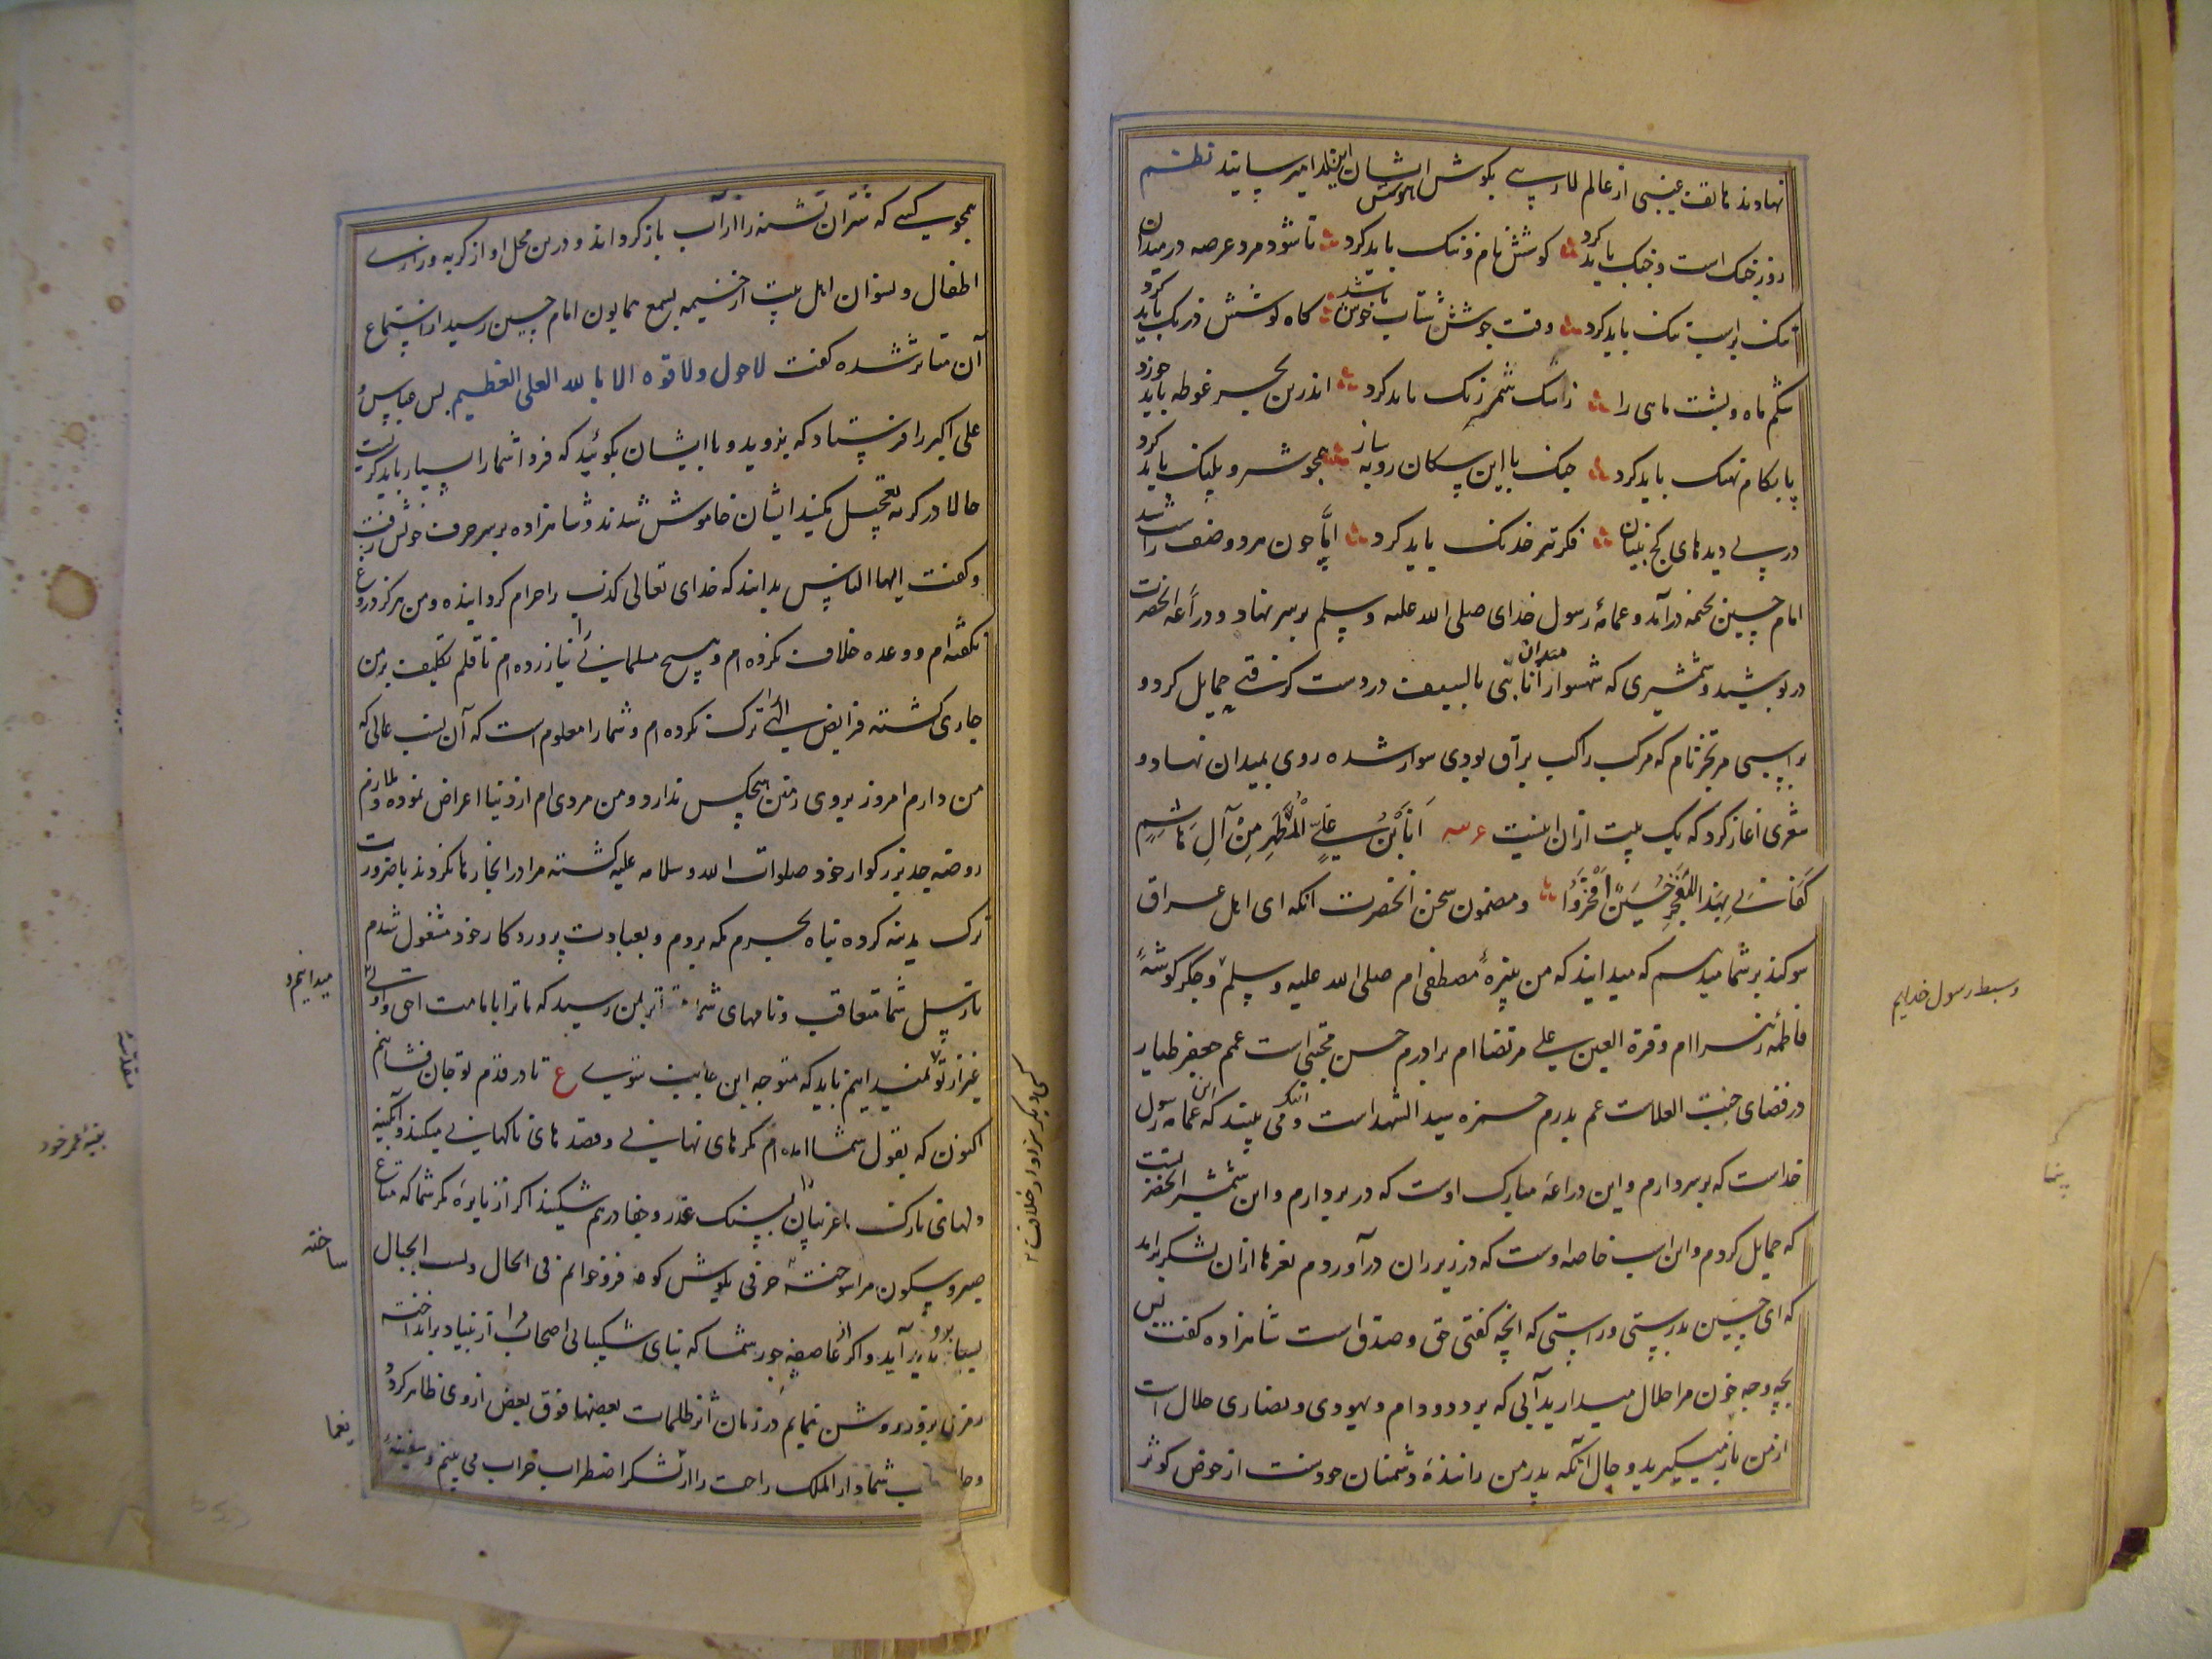 نهادند هاتف غیبی از عالم لاریبی بگوش هوش ایشان این ندا میرسانید نظم
روز جنگ است و جنگ باید کرد کوشش نام و ننگ باید کرد تا شود مرد عرصه در میدان
تنک براسب تنک باید کرد وقت جوشش شتاب خوش باشد گاه کوشش درنگ باید کرد
شکم ماه و پشت ماهی را ز اشک شمر رنک باید کرد اندرین بحر غوطه باید خورد
پا بکام نهنک باید کرد جنک با این سکان روبه باز همچو شیر و پلنک باید کرد
در پی دیدهای کج بینان فکر تیر خدنک باید کرد امّا چون هر دو صف راست شد
امام حسین بخیمه درآمد و عمامهٔ رسول خدای صلی الله علیه و سلم بر سر نهاد و درّاعه آنحضرت
در پوشید و شمشیری که شهسوار میدان انا نبی بالسیف در دست گرفتی حمایل کرد و
بر اسبی مرتجز نام که مرکب راکب براق بودی سوار شده روی بمیدان نهاد و
شعری آغاز کرد که یک بیت ازان اینست اَنَا بْنُ عَلِیِّ الْمُطَهَّرِ مِنْ آلِ هَاشِمٍ
کَفَانِی بِهٰذَا الفَخْرِ حُسَیْنٌ اَفْخَرُ و مضمون سخن آنحضرت آنکه ای اهل عراق
سوکند بر شما میدهم که میدانید که من نبیرهٔ مصطفی ام صلی الله علیه و سلم و جکر گوشهٔ
فاطمه زهرا ام و قرة العین علی مرتضا ام برادرم حسن مجتبی است عمم جعفر طیار
در فضای جنت العلاست عم پدرم حمزه سید الشهداست و می بینید که این عمامه رسول
خداست که بر سر دارم و این دراعه مبارک اوست که در بر دارم و این شمشیر آنحضرتست
که حمایل کردم و این اسب خاصه اوست که در زیر ران درآوردم نعرها ازان لشکر برامد
که ای حسین بدرستی و راستی که انچه گفتی حق و صدق است شاهزاده گفت پس
بچه وجه خون مرا حلال میدارید آبی که بر دد و دام و یهودی و نصاری حلال است
از من باز میگیرید و حال آنکه پدر من رانندهٔ دشمنان خودست از حوض کوثر
وسبط رسول خدایم
همچو کسی که شتران تشنه را از آب باز گرداند و درین محل آواز گریه و زاری
اطفال و نسوان اهل بیت از خیمه بسمع همایون امام حسین رسید از استماع
آن متاثر شده گفت لا حول ولا قوه الا بالله العلی العظیم پس عباس و
علی اکبر را فرستاد که بروید و با ایشان بگوئید که فردا شما را بسیار باید گریست
حالا در گریه تعجیل مکنید ایشان خاموش شدند و شاهزاده بر سر حرف خویش رفت
و گفت ایها الناس بدانید که خدای تعالی کذب را حرام گردانیده و من هرگز دروغ
نگفته ام و وعده خلاف نکرده ام و هیچ مسلمانی را نیازرده ام تا قلم تکلیف بر من
جاری گشته فرایض الهی ترک نکرده ام و شما را معلوم است که آن نسب عالی که
من دارم امروز بروی زمین هیچکس ندارد و من مردی ام از دنیا اعراض نموده و ملازم
روضه جد بزرگوار خود صلوات الله و سلامه علیه گشته مرا در انجا رها نکردند باضرورت
ترک مدینه کرده پناه بحرم مکه بردم و بعبادت پروردگار خود مشغول شدم
تا رسل شما متعاقب و نامهای شما متواتر بمن رسید که ما ترا بامامت احق و اولی
غیر از تو نمیدانیم باید که متوجه این جانب شوی ع تا در قدم تو جان فشانیم
اکنون که بقول شما امده ام مکرهای نهانی و قصدهای ناگهانی میکنید و آبگینه
دلهای نازک غریبان را بسنگ غدر و جفا درهم میشکنید اگر از نایره مکر شما که متاع
صبر و سکون مرا سوخته حرفی بگوش کوه فرو خوانم فی الحال
برآید و اگر از عاصفه جور شما که بنای شکیبائی اصحاب را از بنیاد برانداخت
رمزی بروز روشن نمایم در زمان اثر ظلمات بعضها فوق بعض از وی ظاهر گردد
شما دار الملک راحت را از لشکر اضطراب خراب می بینم و سفینهٔ
میدانیم و
کسی دیگر سزاوار خلافت
ساخته
بقیهٔ عمر خود